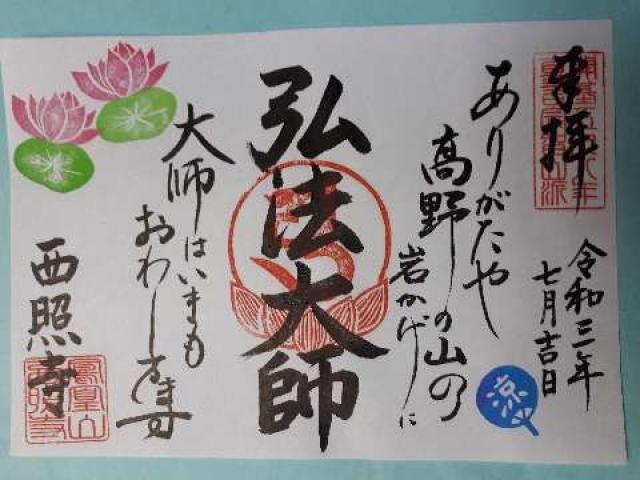 奉拝
令和三年
七月吉日
涼
ありがたや
高野の山の
岩かげに
弘法大師
大師はいまも
おわします
西照寺
鳳凰山